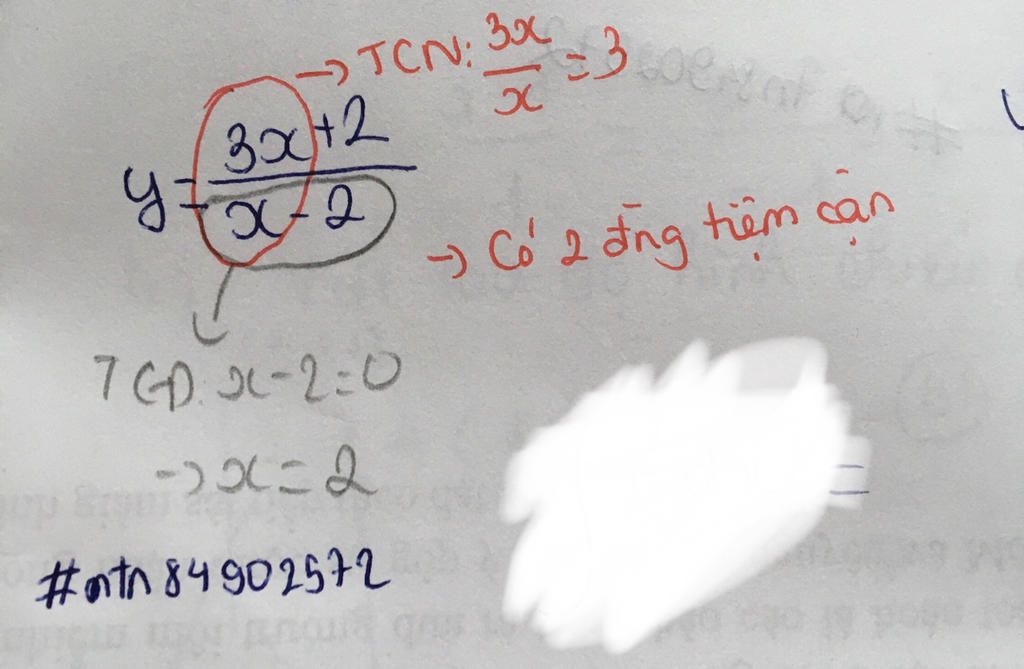 → TCN: 3x/x = 3
y = (3x+2)/(x-2)
→ Có 2 đng tiệm cận
TCĐ: x-2=0
→ x = 2
#ntn84902572